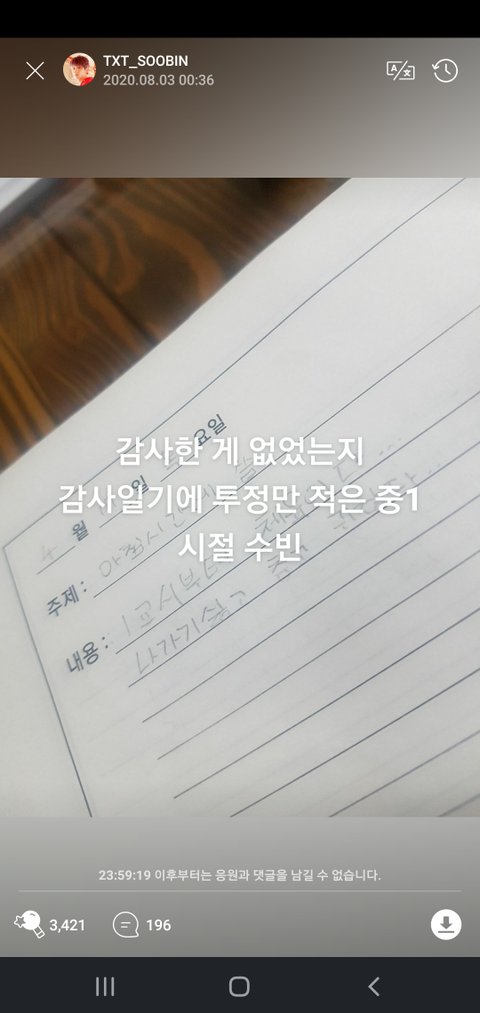 TXT_SOOBIN
2020.08.03 00:36
감사한 게 없었는지
감사일기에 투정만 적은 중1
시절 수빈
월 일 요일
주제:
내용: 1교시부터
나가기 싫고
23:59:19 이후부터는 응원과 댓글을 남길 수 없습니다.
3,421
196